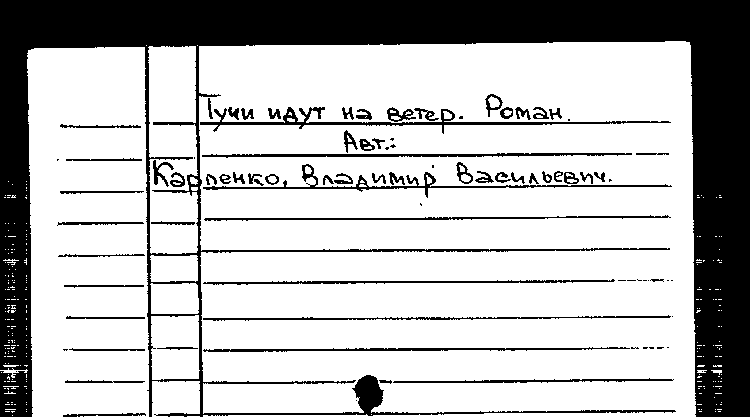 Тучи идут на ветер. Роман.
Авт.:
Карпенко, Владимир Васильевич.